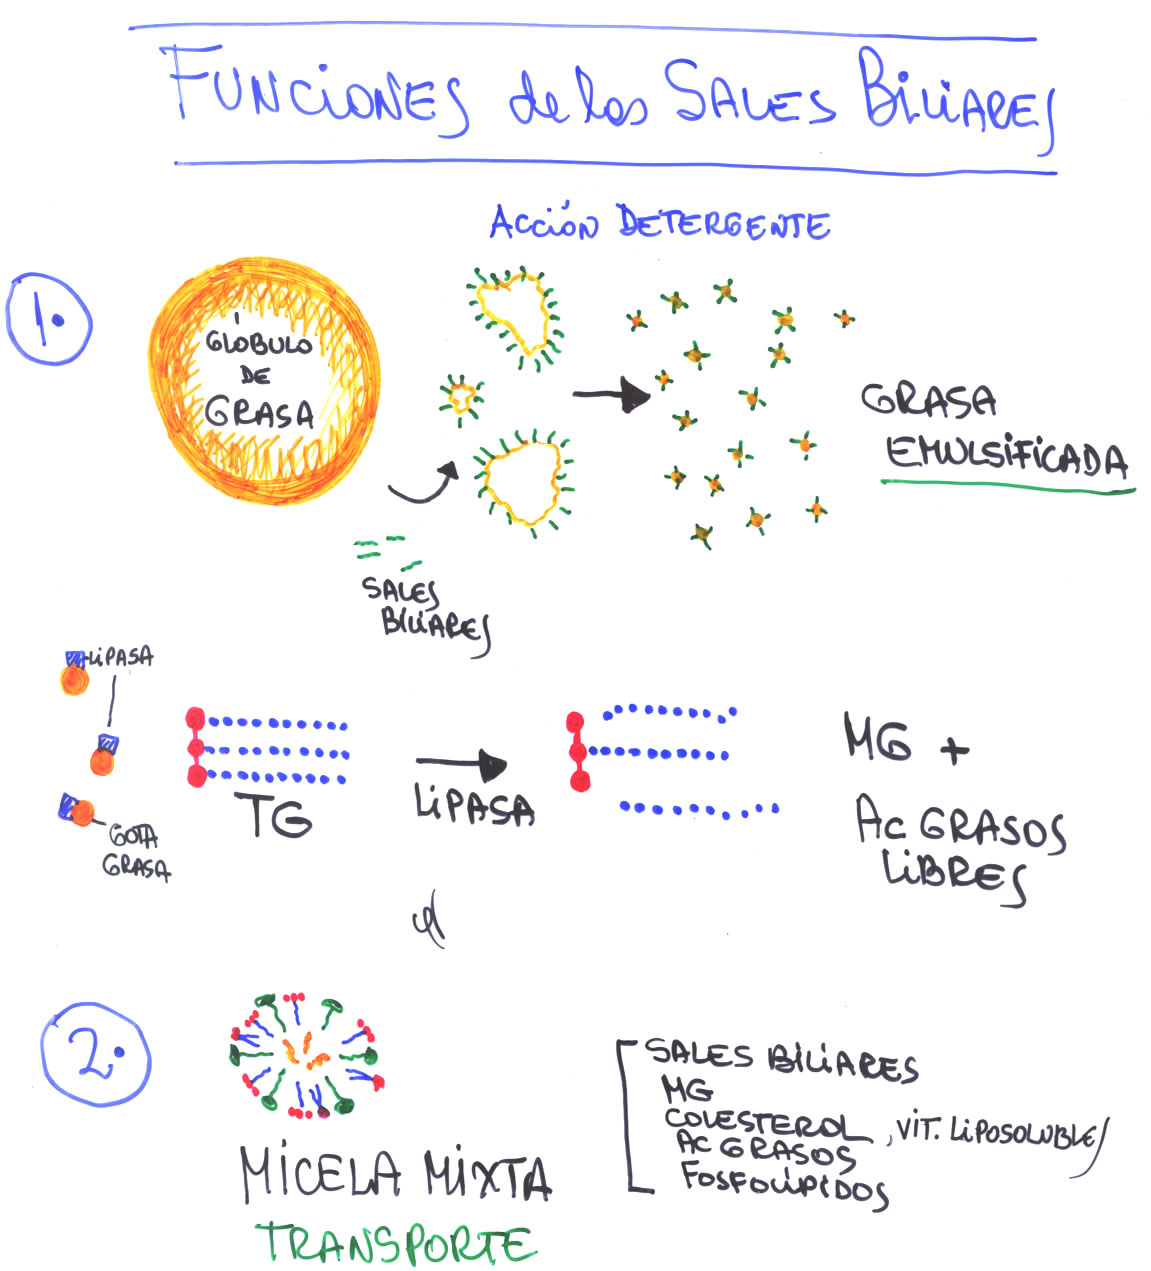 FUNCIONES de las SALES BILIARES
ACCIÓN DETERGENTE
1.
GLÓBULO
DE
GRASA
GRASA
EMULSIFICADA
SALES
BILIARES
LIPASA
GOTA
GRASA
TG
LIPASA
MG +
AC GRASOS
LIBRES
2.
MICELA MIXTA
TRANSPORTE
SALES BILIARES
MG
COLESTEROL, VIT. LIPOSOLUBLES
AC GRASOS
FOSFOLÍPIDOS